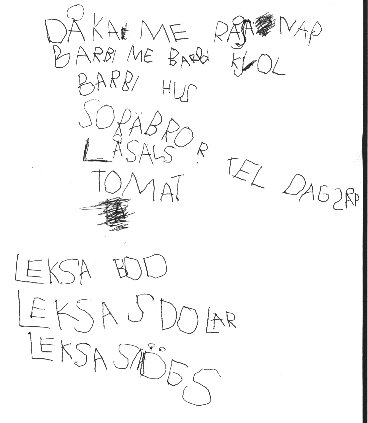 DÅKAI ME RÅSNAP
BARBI ME BARBI KJOL
BARBI HUS
SORABROR
LÅSALS
TEL DAGSRP
TOMAT
LEKSA BOD
LEKSA SDOLAR
LEKSA SÄÖGS